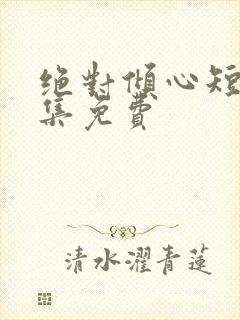 绝對傾心短
集免費
清水濯青蓮